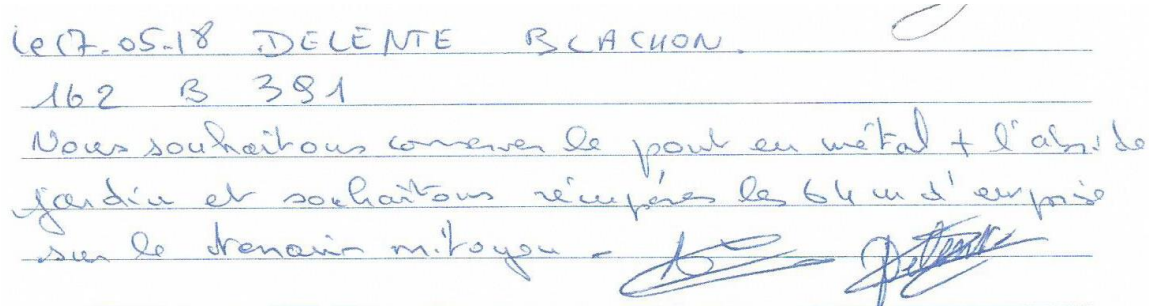 le 17.05.18 DELENTE BLACHON.
162 B 391
Nous souhaitons conserver le pont en métal + l'abri de
jardin et souhaitons récupérer les 64 m d'emprise
sur le terrain mitoyen -